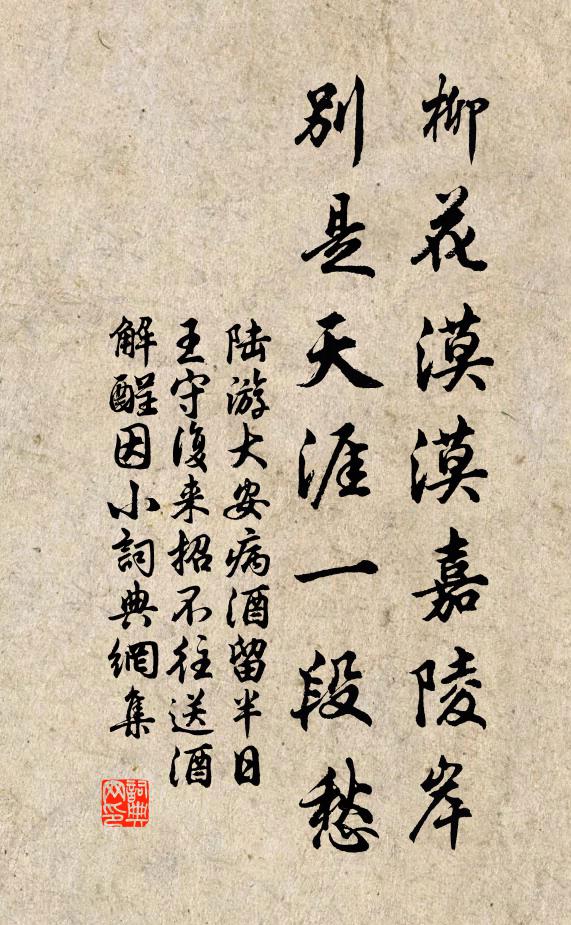 柳花漠漠嘉陵岸
別是天涯一段愁
陆游大安病酒留半日
王守復来招不往送酒
解酲因小詞典網集
詞典
网印